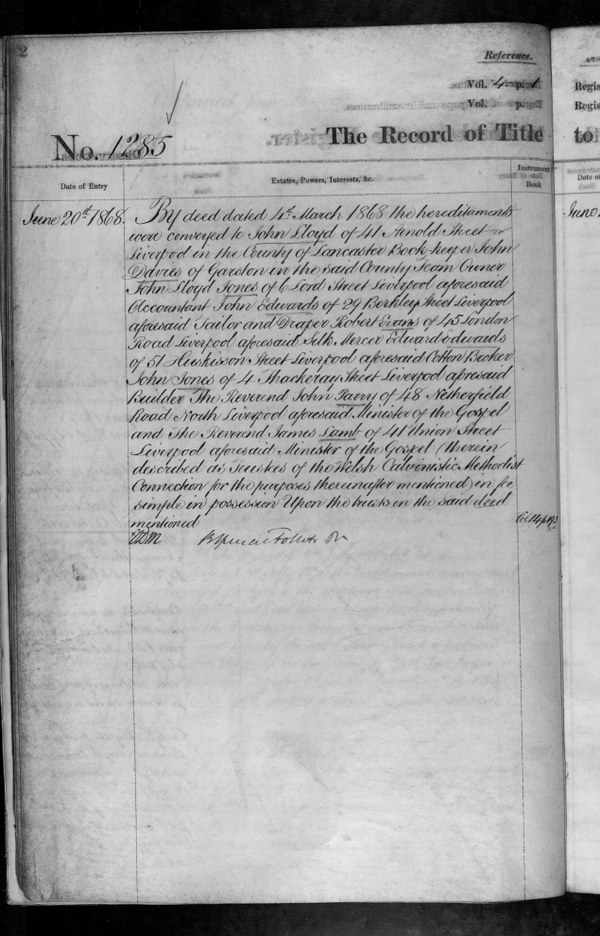 2
Reference.
Vol. 4 p. 1
Vol. p.
No. 1285
The Record of Title
to
Regis
Regis
Date of Entry
Estates, Powers, Interests, &c.
Instrument Book
Date of
June 20th 1868.
June
By deed dated 4th March 1868 the hereditaments
were conveyed to John Lloyd of 41 Arnold Street
Liverpool in the County of Lancaster Book-keeper John
Davies of Garston in the said County Team Owner
John Lloyd Jones of 6 Lord Street Liverpool aforesaid
Accountant John Edwards of 29 Berkley Street Liverpool
aforesaid Tailor and Draper Robert Evans of 45 London
Road Liverpool aforesaid Silk Mercer Edward Edwards
of 51 Huskisson Street Liverpool aforesaid Cotton Broker
John Jones of 4 Thackeray Street Liverpool aforesaid
Builder The Reverend John Parry of 48 Netherfield
Road North Liverpool aforesaid Minister of the Gospel
and The Reverend James Lamb of 41 Union Street
Liverpool aforesaid Minister of the Gospel (therein
described as Trustees of the Welsh Calvinistic Methodist
Connection for the purposes thereinafter mentioned) in fee
simple in possession Upon the trusts in the said deed
mentioned